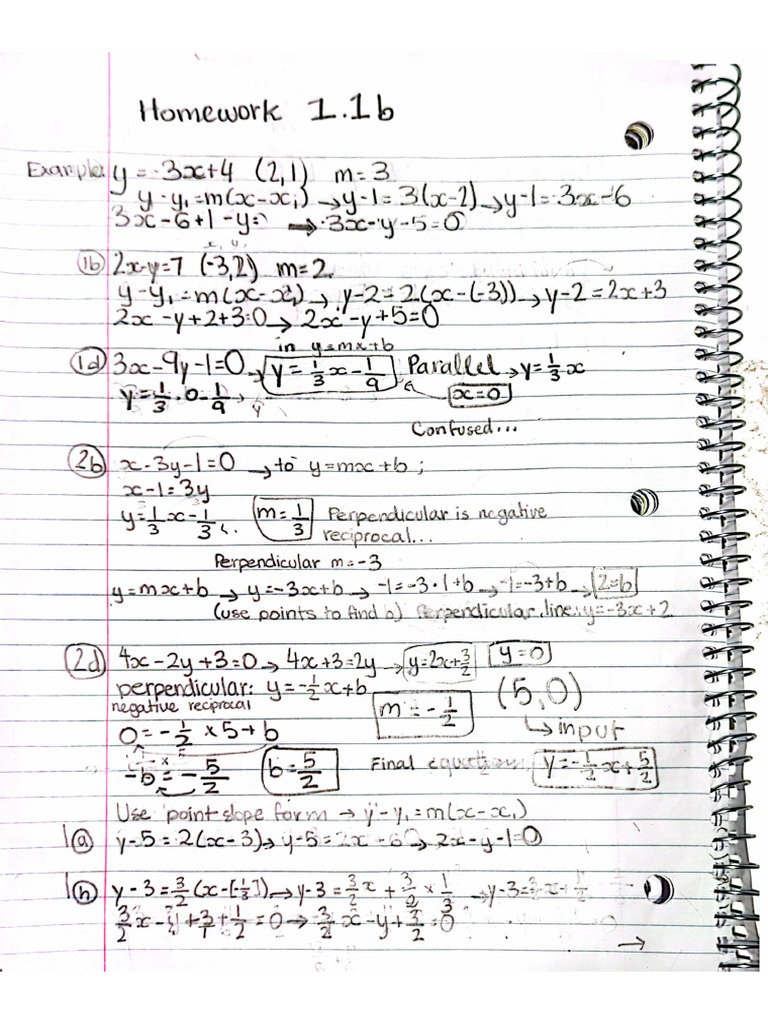 Homework 1.1b
Example: y = 3x+4 (2,1) m = 3
y - y₁ = m(x-x₁) → y-1 = 3(x-2) → y-1 = 3x-6
3x-6+1-y= → 3x-y-5=0
x, y,
1b 2x-y=7 (-3,2) m=2
y-y₁ = m(x-x₁) → y-2 = 2(x-(-3)) → y-2 = 2x+3
2x-y+2+3=0 → 2x-y+5=0
in y=mx+b
1d 3x-9y-1=0 → y = 1/3 x - 1/9 Parallel → y = 1/3 x
y = 1/3 · 0 - 1/9 x=0
Confused...
2b x-3y-1=0 → to y=mx+b;
x-1=3y
y = 1/3 x - 1/3 m = 1/3 Perpendicular is negative
reciprocal...
Perpendicular m=-3
y=mx+b → y=-3x+b → -1=-3·1+b → -1=-3+b → 2=b
(use points to find b) Perpendicular line: y=-3x+2
2d 4x-2y+3=0 → 4x+3=2y → y=2x+3/2 y=0
perpendicular: y = -1/2 x+b m = -1/2 (5,0)
negative reciprocal
0 = -1/2 × 5 + b ↳ input
-b = -5/2 b = 5/2 Final equation y = -1/2 x + 5/2
Use point slope form → y-y₁=m(x-x₁)
1a y-5 = 2(x-3) → y-5 = 2x-6 → 2x-y-1=0
1h y-3 = 3/2 (x-[-1/3]) → y-3 = 3/2 x + 3/2 × 1/3 → y-3=
3/2 x - + 3/1 + 1/2 = 0 → 3/2 x - y + 3/2 = 0
→